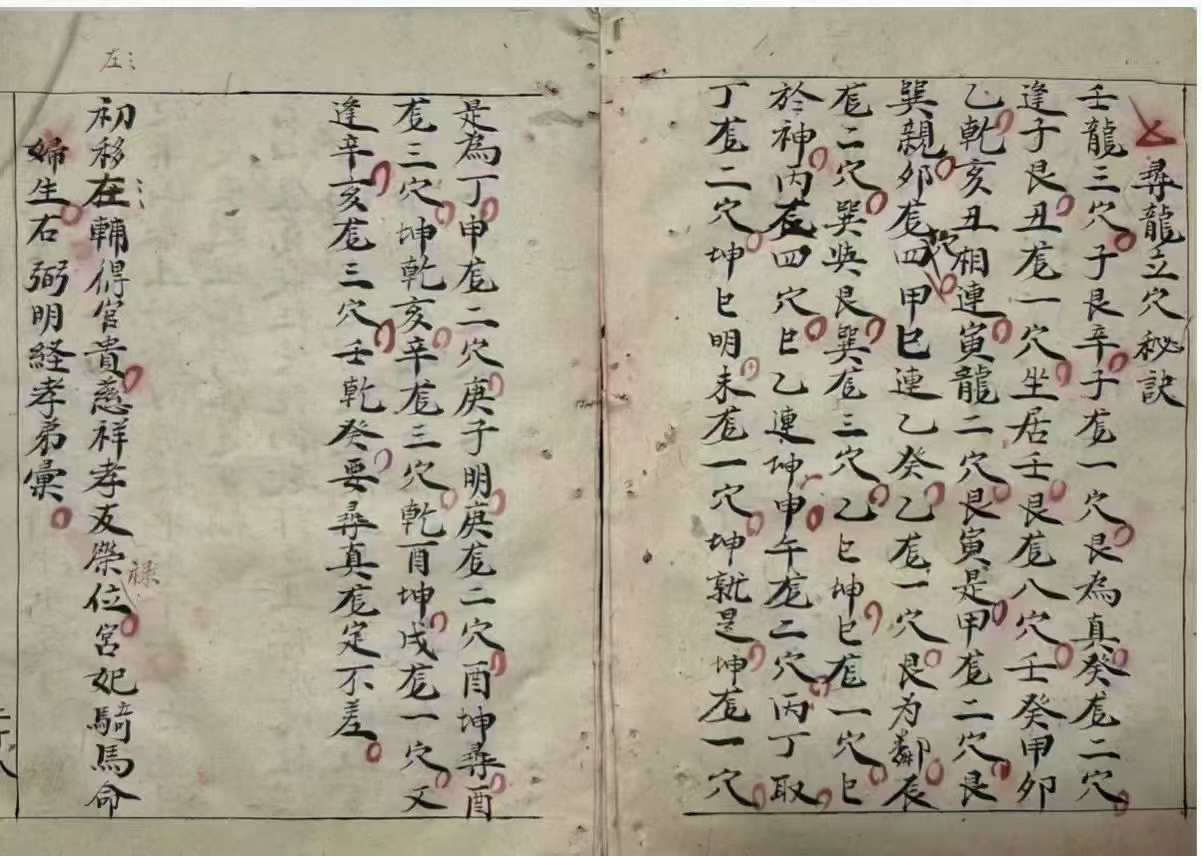 尋龍立穴秘訣
壬龍三穴子艮辛子龙一穴艮為真癸龙二穴
逢子艮丑龙一穴坐居壬艮龙八穴壬癸甲卯
乙乾亥丑相連寅龍二穴艮寅是甲龙二穴艮
巽親卯龙四穴甲巳連乙癸乙龙一穴艮为鄰辰
龙二穴巽与艮巽龙三穴乙巳坤巳龙一穴巳
於神丙龙四穴巳乙連坤申午龙二穴丙丁取
丁龙二穴坤巳明未龙一穴坤就是坤龙一穴
是為丁申龙二穴庚子明庚龙二穴酉坤尋酉
龙三穴坤乾亥辛龙三穴乾酉坤戌龙一穴文
逢辛亥龙三穴壬乾癸要尋真龙定不差
左
初移在輔得官貴慈祥孝友榮位宮妃騎馬命
祿
婦生右弼明経孝弟彙